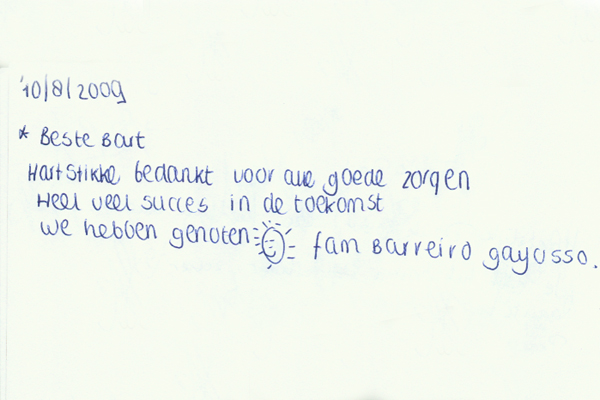 10/8/2009
* Beste Bart
Hartstikke bedankt voor alle goede zorgen
Heel veel succes in de toekomst
We hebben genoten fam Barreiro gayosso.